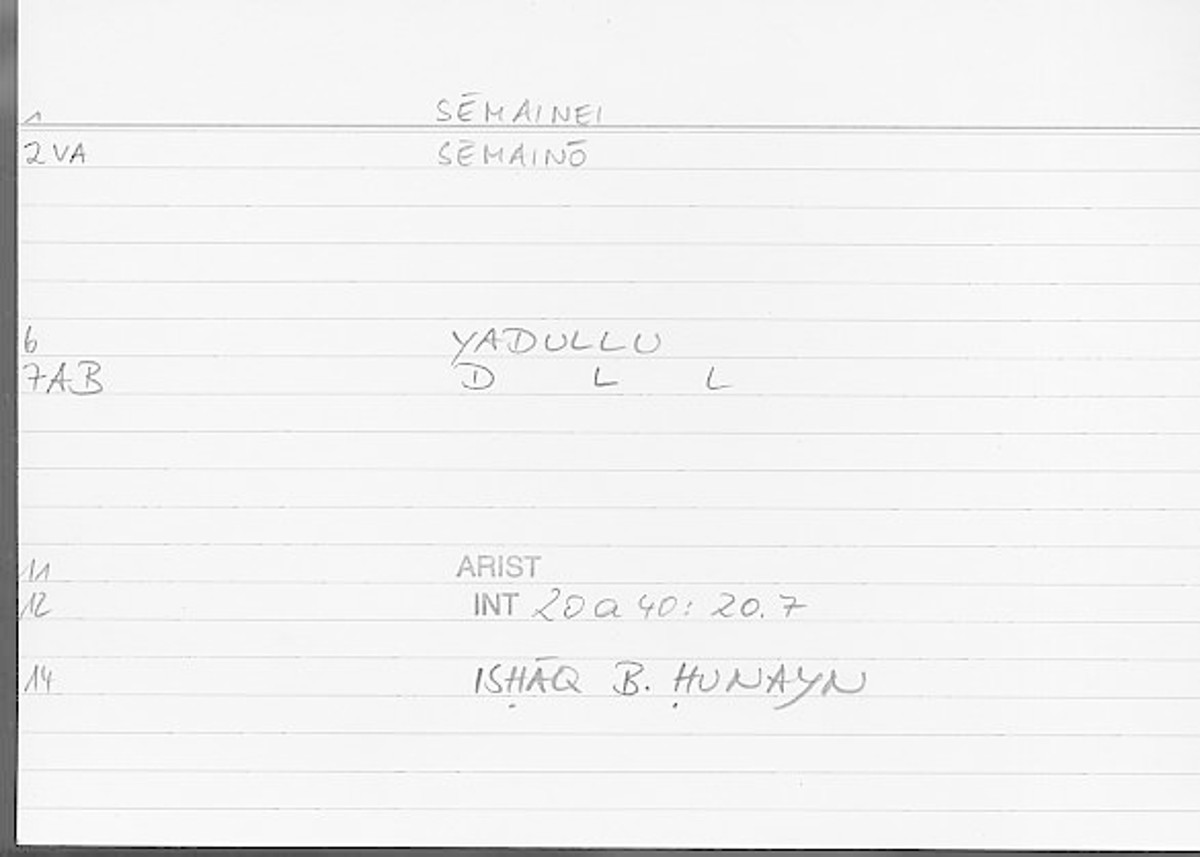 1 SĒMAINEI
2 VA SĒMAINŌ
6 YADULLU
7AB D L L
11 ARIST
12 INT 20a 40: 20.7
14 ISḤĀQ B. ḤUNAYN